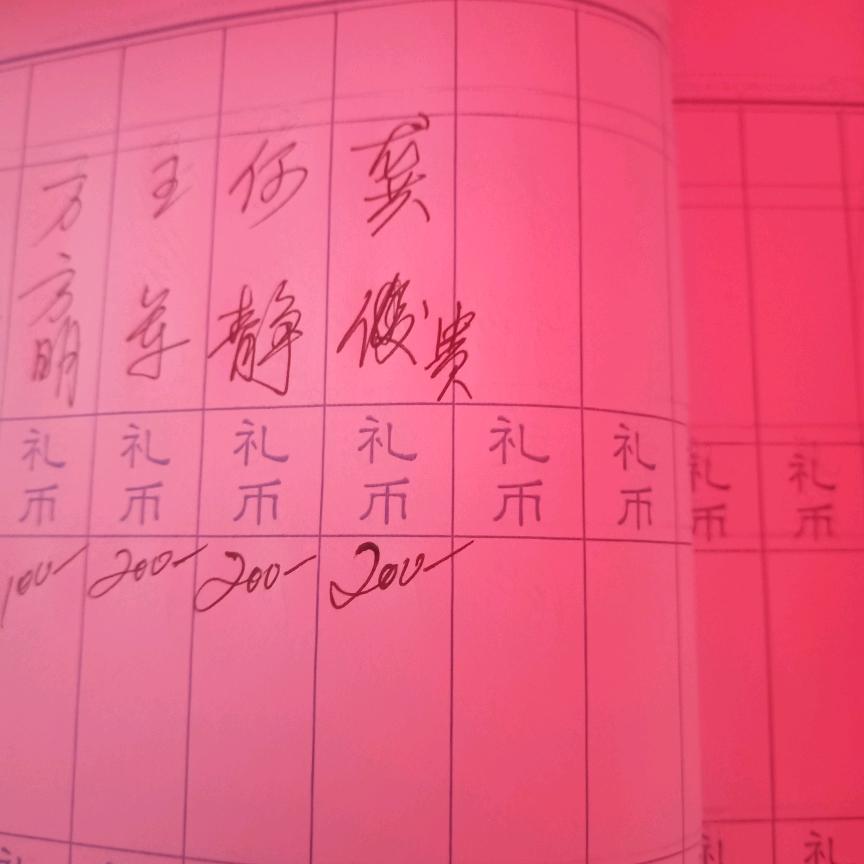 方方明
王军
任静
龚俊贵
礼币 礼币 礼币 礼币 礼币 礼币 礼币 礼币
100- 200- 200- 200-
礼 礼 礼